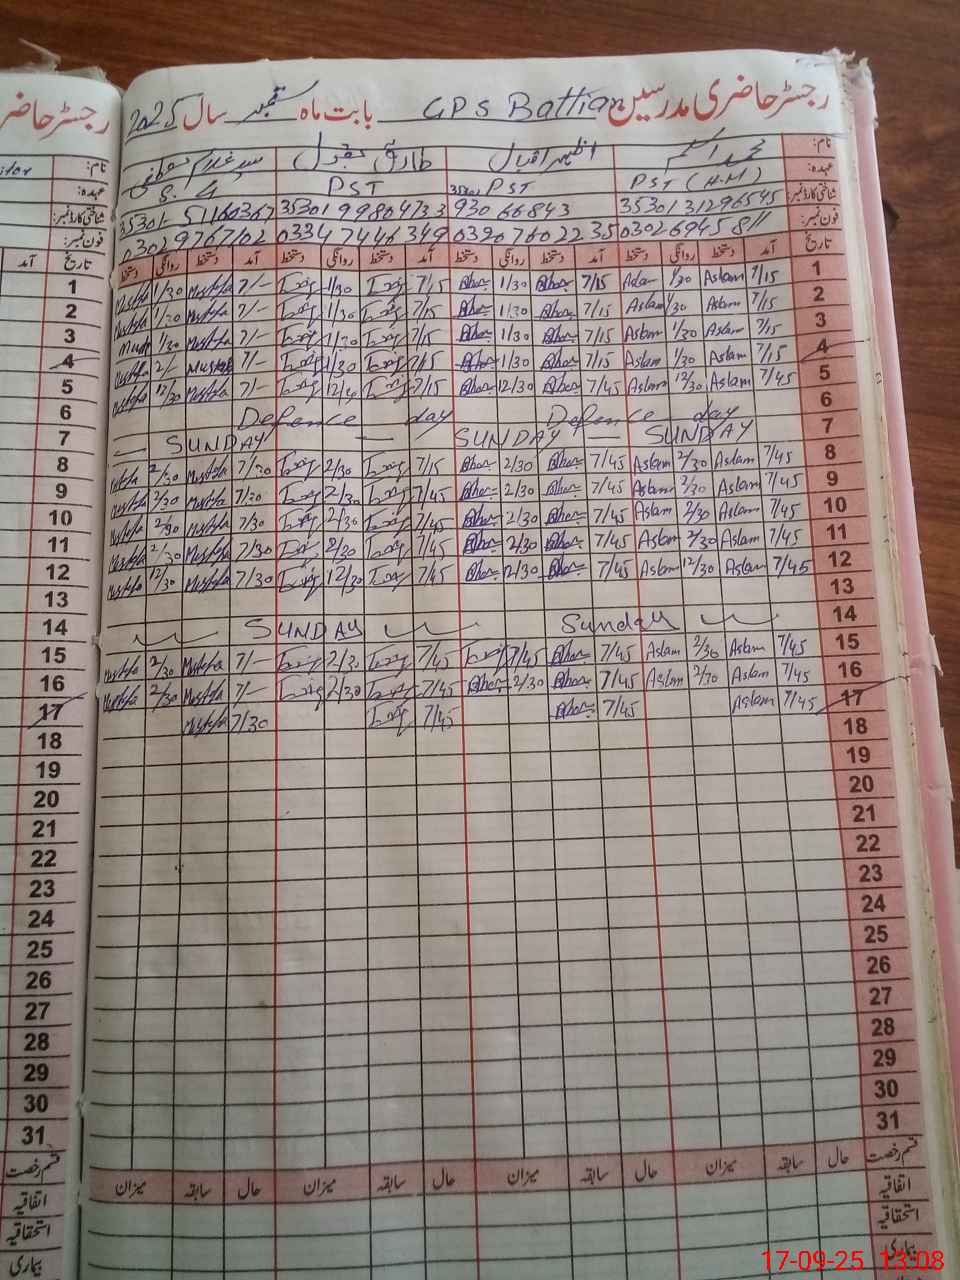 رجسٹر حاضری مدرسین GPS Battian بابت ماہ ستمبر سال 2025
نام: محمد اسلم اظہر اقبال طارق سید غلام مصطفی
عہدہ: PST (H.M) PST PST S.G
شناختی کارڈ نمبر: 35301 31296545 35301 930 66843 35301 99804733 35301-51160367
فون نمبر: 03026945811 03207602235 03347446349 03029767102
تاریخ آمد دستخط روانگی دستخط آمد دستخط روانگی دستخط آمد دستخط روانگی دستخط آمد دستخط روانگی دستخط تاریخ
1 Mustafa 1/30 Mustafa 7/- Tariq 1/30 Tariq 7/15 Azhar 1/30 Azhar 7/15 Aslam 1/30 Aslam 7/15 1
2 Mustafa 1/30 Mustafa 7/- Tariq 1/30 Tariq 7/15 Azhar 1/30 Azhar 7/15 Aslam 1/30 Aslam 7/15 2
3 1/30 Mustafa 7/- Tariq 1/30 Tariq 7/15 Azhar 1/30 Azhar 7/15 Aslam 1/30 Aslam 7/15 3
4 Mustafa 2/- Mustafa 7/- Tariq 1/30 Tariq 7/15 Azhar 1/30 Azhar 7/15 Aslam 1/30 Aslam 7/15 4
5 Mustafa 12/30 Mustafa 7/- Tariq Tariq 7/15 Azhar 12/30 Azhar 7/45 Aslam 12/30 Aslam 7/45 5
6 Defence day Defence day 6
7 — SUNDAY — SUNDAY — SUNDAY 7
8 Mustafa 2/30 Mustafa 7/30 Tariq 2/30 Tariq 7/15 Azhar 2/30 Azhar 7/45 Aslam 2/30 Aslam 7/45 8
9 Mustafa 2/30 Mustafa 7/30 Tariq 2/30 Tariq 7/45 Azhar 2/30 Azhar 7/45 Aslam 2/30 Aslam 7/45 9
10 Mustafa 2/30 Mustafa 7/30 Tariq 2/30 Tariq 7/45 Azhar 2/30 Azhar 7/45 Aslam 2/30 Aslam 7/45 10
11 Mustafa 2/30 Mustafa 7/30 Tariq 2/30 Tariq 7/45 Azhar 2/30 Azhar 7/45 Aslam 2/30 Aslam 7/45 11
12 Mustafa 12/30 Mustafa 7/30 Tariq 12/30 Tariq 7/45 Azhar 12/30 Azhar 7/45 Aslam 12/30 Aslam 7/45 12
13 13
14 SUNDAY Sunday 14
15 Mustafa 2/30 Mustafa 7/- Tariq 2/30 Tariq 7/45 Tariq 7/45 Azhar 7/45 Aslam 2/30 Aslam 7/45 15
16 Mustafa 2/30 Mustafa 7/- Tariq 2/30 Tariq 7/45 Azhar 2/30 Azhar 7/45 Aslam 2/30 Aslam 7/45 16
17 Mustafa 7/30 Tariq 7/45 Azhar 7/45 Aslam 7/45 17
18 18
19 19
20 20
21 21
22 22
23 23
24 24
25 25
26 26
27 27
28 28
29 29
30 30
31 31
قسم رخصت حال سابقہ میزان حال سابقہ میزان حال سابقہ میزان حال سابقہ میزان قسم رخصت
اتفاقیہ اتفاقیہ
استحقاقیہ استحقاقیہ
بیماری بیماری
17-09-25 13:08